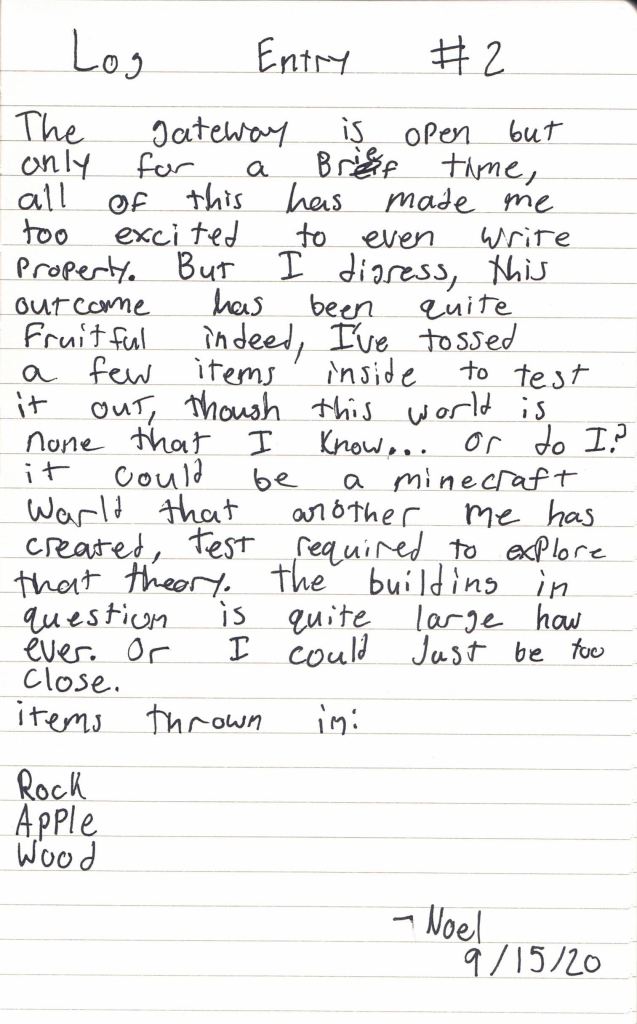 Log Entry #2
The gateway is open but
only for a Brief time,
all of this has made me
too excited to even write
Property. But I digress, this
outcome has been quite
Fruitful indeed, I've tossed
a few items inside to test
it out, though this world is
none that I know... or do I?
it could be a minecraft
World that another me has
created, test required to explore
that theory. the building in
question is quite large how
ever. Or I could Just be too
Close.
items thrown in:
Rock
Apple
Wood
- Noel
9/15/20